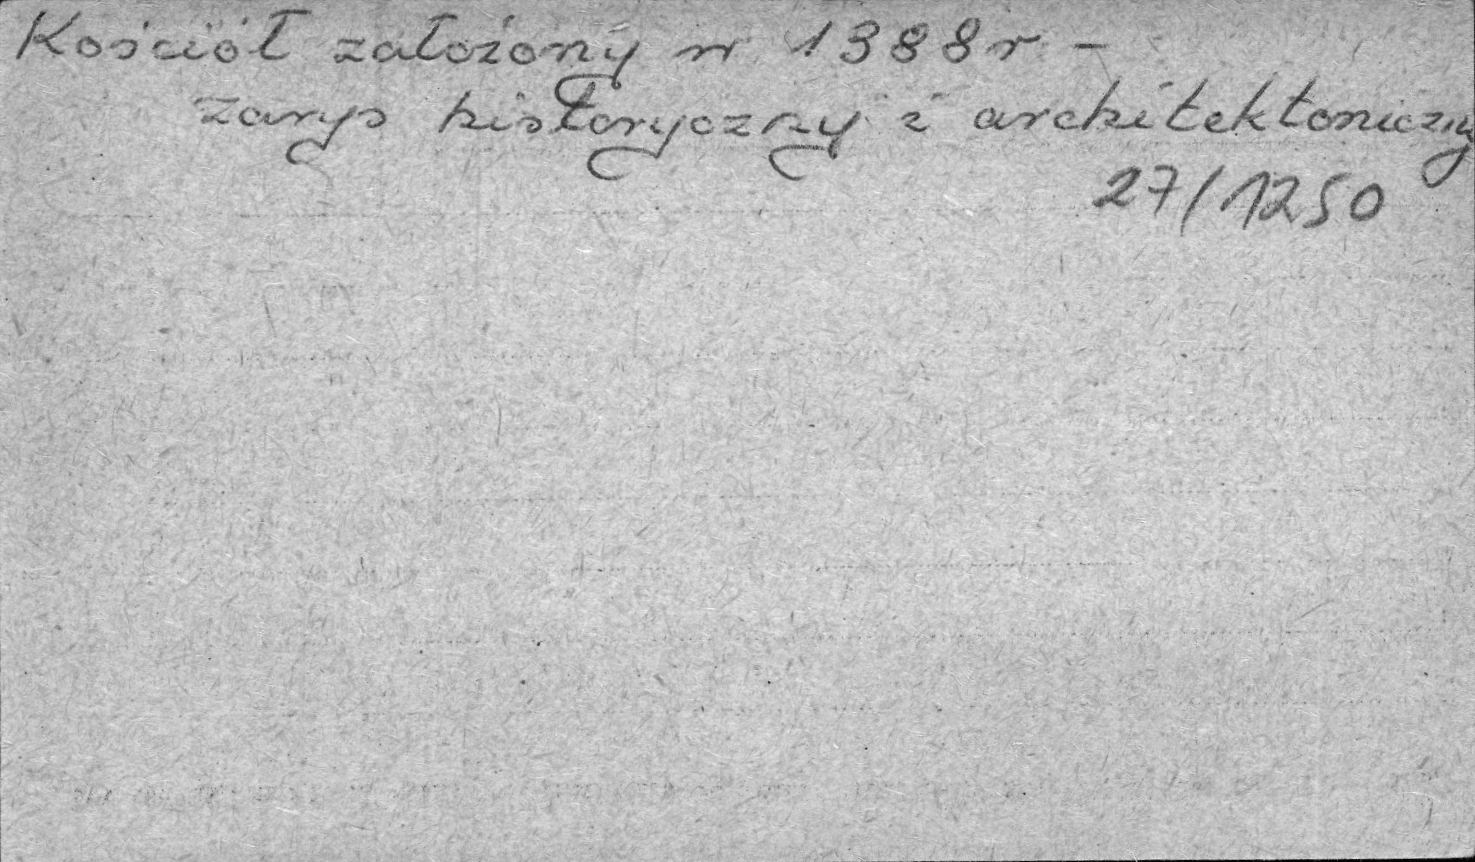 Kościół założony w 1388 r -
zarys historyczny i architektoniczny
27/1250